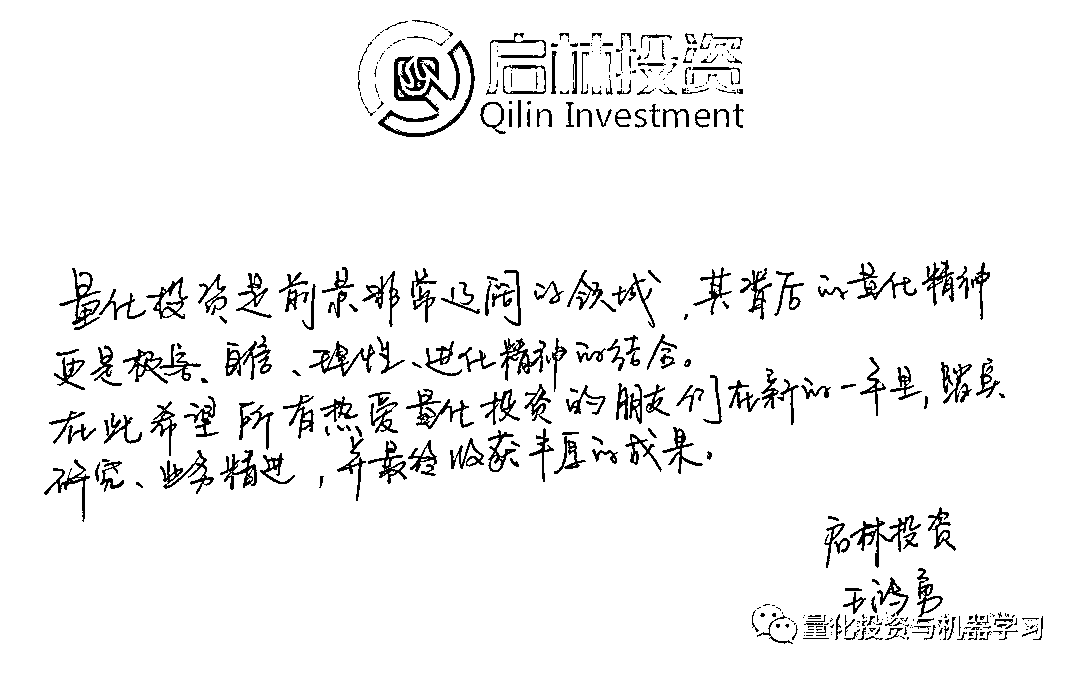 启林投资
Qilin Investment
量化投资是前景非常辽阔的领域,其背后的量化精神
更是极客、自信、理性、进化精神的结合。
在此希望所有热爱量化投资的朋友们在新的一年里,踏实
研究、业务精进,并最终收获丰厚的成果。
启林投资
王鸿勇
量化投资与机器学习